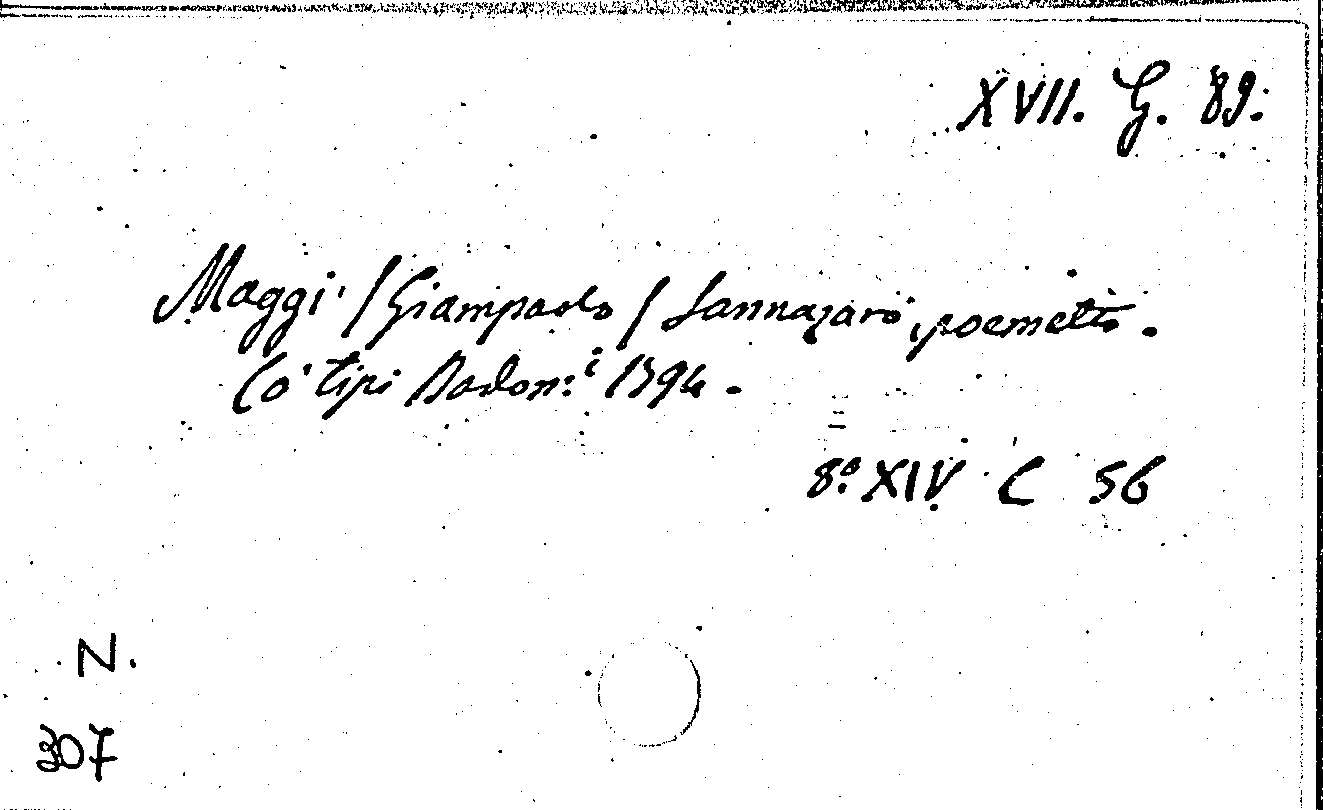 XVII. G. 89.
Maggi /Giampaolo/ Sannazaro, poemetto.
Co' tipi Bodon:i 1794.
8.º XIV. C 56
N.
307